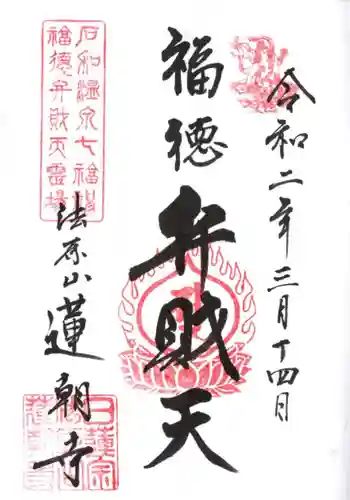 令和二年三月十四日
福徳
弁財天
石和温泉七福神
福徳弁財天霊場
法原山
蓮朝寺
日蓮宗